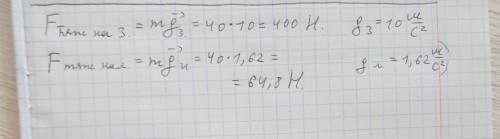 Fтяж на З. = mg⃗з = 40 · 10 = 400 Н. gз = 10 м/с²
Fтяж на л. = mg⃗л = 40 · 1,62 = gл = 1,62 м/с²
= 64,8 Н.